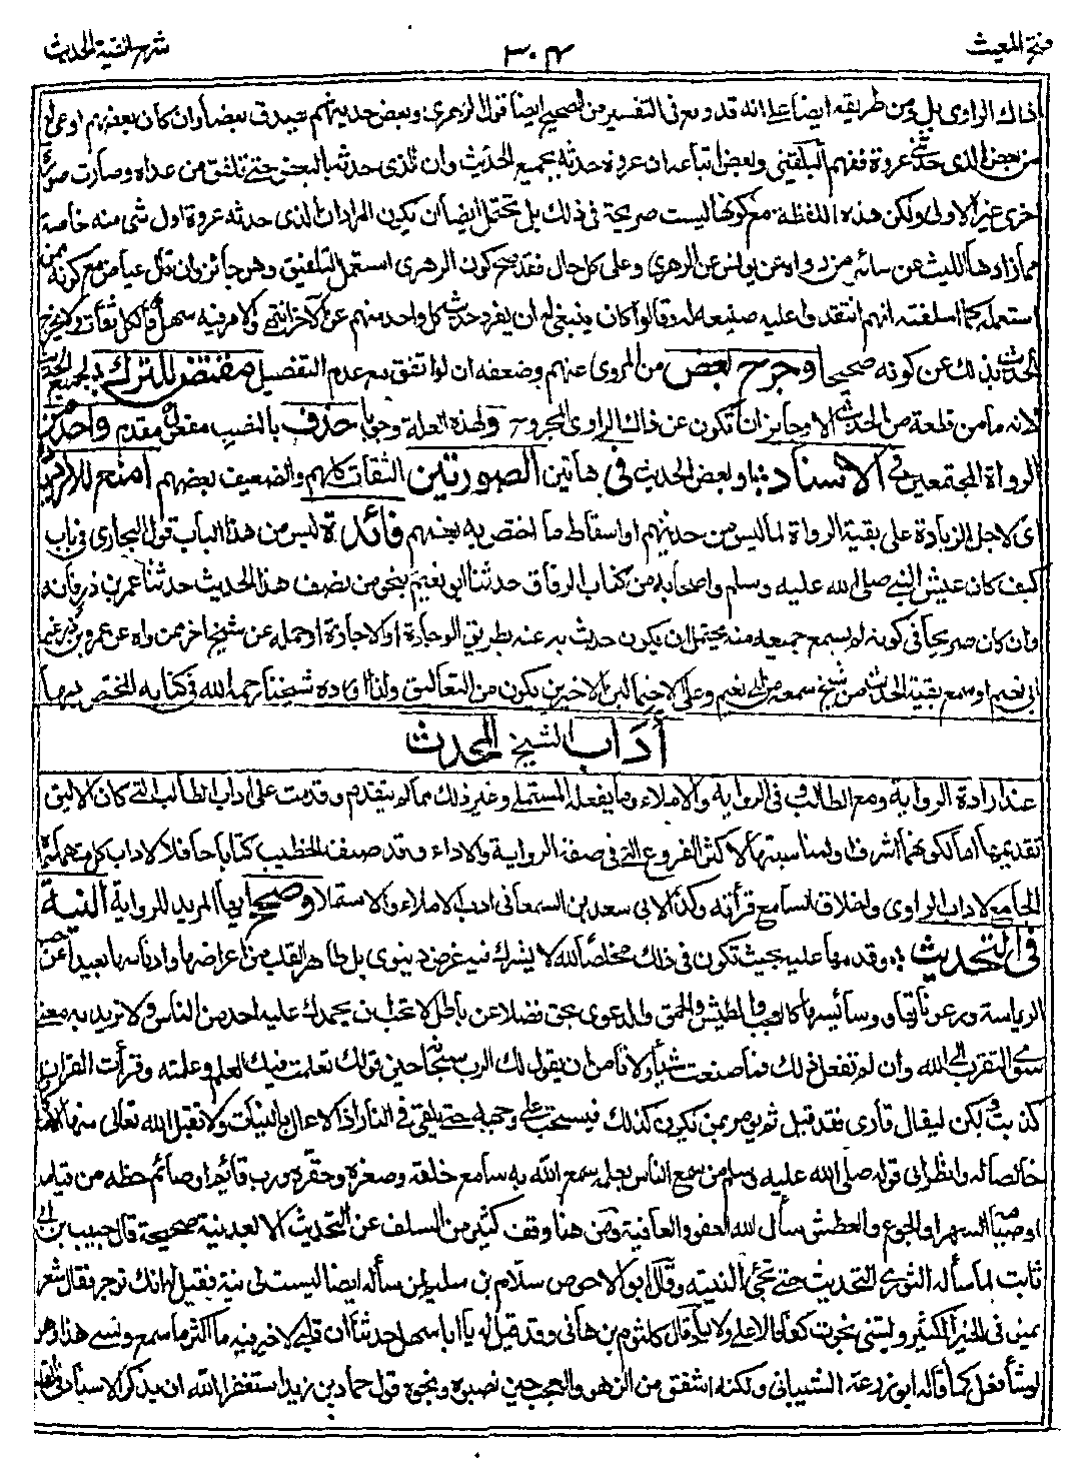 فتح المغيث
٣٠٤
شرح الفية الحديث
ذاك الراوى بل ومن طريقه ايضا على انه قد وقع فى التفسير من الصحيح ايضا قول الزهرى وبعض حديثهم يصدق بعضا وان كان بعضهم اوعى له
من بعض الذى حدثنى عروة ففهم البلقينى وبعض اتباعه ان عروة حدثه بجميع الحديث وان الذى حدثه بالبعض حتى تلفق من عداه وصارت صورة
اخرى غير الاولى ولكن هذه اللفظة مع كونها ليست صريحة فى ذلك بل تحتمل ايضا ان يكون المراد ان الذى حدثه عروة اول شى منه خاصة
مما زادها الليث عن سائر من رواه عن يونس عن الزهرى وعلى كل حال فقد صح كون الزهرى استعمل التلفيق وهو جائز وان قال عياض مع كونه ممن
استعمله كما اسلفته انهم انتقدوا عليه صنيعه له وقالوا كان ينبغى له ان يفرد حديث كل واحد منهم عن الآخر انتهى والامر فيه سهل فالكل ثقات ولا يخرج
الحديث بذلك عن كونه صحيحا وجرح بعض من المروى عنهم وضعفه ان لو اتفق مع عدم التفصيل مقتض للترك بجميع الحديث
لانه ما من قطعة من الحديث الا وجائز ان تكون عن ذاك الراوى المجروح ولهذه العلة وجوبا حذف بالنصب مفعول مقدم واحد من
الرواة المجتمعين فى الاسناد او بعض الحديث فى هاتين الصورتين الثقات كلهم والضعيف بعضهم امنع للازدياد
اى لاجل الزيادة على بقية الرواة لما ليس من حديثهم او اسقاط ما اختص به بعضهم فائدة ليس من هذا الباب قول البخارى فى باب
كيف كان عيش النبى صلى الله عليه وسلم واصحابه من كتاب الرقاق حدثنا ابو نعيم بنحو من نصف هذا الحديث حدثنا عمر بن ذر فانه
وان كان صريحا فى كونه لم يسمع جميعه منه يحتمل ان يكون حدث به عنه بطريق الوجادة او الاجازة او حمله عن شيخ اخر ممن رواه عن عمر بن ذر غير
ابى نعيم او سمع بقية الحديث من شيخ سمعه من ابى نعيم وعلى الاحتمالين الاخيرين يكون من التعاليق ولذا اورده شيخنا رحمه الله فى كتابه المختص بها
آداب الشيخ المحدث
عند ارادة الرواية ومع الطالب وفى الرواية والاملاء وما يفعله المستملى وغير ذلك مما لم يتقدم وقدمت على اداب الطالب التى كان الاليق
تقديمها اما لكونهما اشرف او لمناسبتها لاكثر الفروع التى فى صفة الرواية والاداء وقد صنف الخطيب كتابا حافلا لاداب كل منهما سماه
الجامع لاداب الراوى واخلاق السامع قرأته وكذا لابى سعد بن السمعانى ادب الاملاء والاستملا وصحح ايها المريد للرواية النية
فى التحديث وقدمها عليه بحيث تكون فى ذلك مخلصا لله لا يشرك فيه غرض دنيوى بل طاهر القلب من اعراضها وادناسها بعيدا عن حب
الرياسة ورعوناتها ووسائسها كالعجب والطيش والحمق والدعوى بحق فضلا عن باطل لا تحب ان يحمدك عليه احد من الناس ولا تريد به معنى
سوى التقرب الى الله وان لم تفعل ذلك فما صنعت شيأ ولا تأمن ان يقول لك الرب سبحانه حين قولك تعلمت فيك العلم وعلمته وقرأت القران
كذبت ولكن ليقال قارى فقد قيل ثم يؤمر بمن تكون كذلك فيسحب على وجهه حتى يلقى فى النار اذ الاعمال بالنيات ولا تقبل الله تعالى منها الا ما
خالصا له وانظر الى قوله صلى الله عليه وسلم من سمع الناس بعمله سمع الله به سامع خلقه وصغره وحقره ورب قائم او صائم حظه من قيامه
او صيامه السهر او الجوع والعطش نسأل الله العفو والعافية ومن هنا وقف كثير من السلف عن التحديث الا بعد نية صحيحة قال حبيب بن ابى
ثابت لما سأله الثورى التحديث حتى تجئ النية وقال ابو الاحوص سلام بن سليم لمن سأله ايضا ليست لى نية فقيل له انك توجر فقال شعر
يمنونى الخير الكثير وليتنى نجوت كفافا لا على ولا ليا وقال كلثوم بن هانى وقد قيل له يا ابا سهل حدثنا ان قلبى لا خير فيه ما اكثر ما سمع ونسى هذا وهو
لو شأ فعل كما قاله ابو زرعة الشيبانى ولكنه اشفق من الزهو والعجب حين نصبوه ونحوه قول حماد بن زيد استغفر الله ان يذكر الاسناد فى القلب